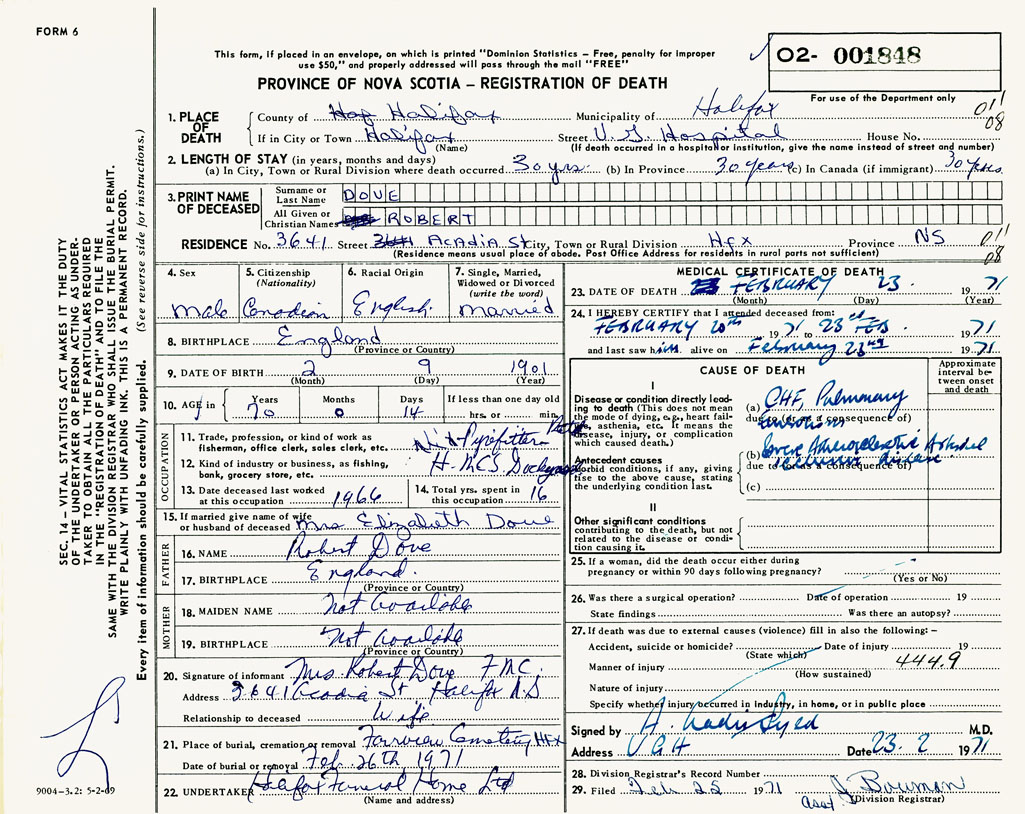 FORM 6
This form, if placed in an envelope, on which is printed "Dominion Statistics – Free, penalty for improper
use $50," and properly addressed will pass through the mail "FREE"
02- 001848
PROVINCE OF NOVA SCOTIA – REGISTRATION OF DEATH
For use of the Department only
011
08
1. PLACE OF DEATH
County of Halifax Municipality of Halifax
If in City or Town Halifax Street V.G. Hospital House No.
(Name) (If death occurred in a hospital or institution, give the name instead of street and number)
2. LENGTH OF STAY (in years, months and days)
(a) In City, Town or Rural Division where death occurred 30 yrs. (b) In Province 30 years (c) In Canada (if immigrant) 30 years
3. PRINT NAME OF DECEASED
Surname or Last Name DOVE
All Given or Christian Names ROBERT
RESIDENCE No. 3641 Street Acadia St City, Town or Rural Division Hfx Province NS
011
08
(Residence means usual place of abode. Post Office Address for residents in rural parts not sufficient)
4. Sex
male
5. Citizenship
(Nationality)
Canadian
6. Racial Origin
English
7. Single, Married,
Widowed or Divorced
(write the word)
married
8. BIRTHPLACE England
(Province or Country)
9. DATE OF BIRTH 2 9 1901
(Month) (Day) (Year)
10. AGE in Years 70 Months 0 Days 14 If less than one day
hrs. or min.
OCCUPATION
11. Trade, profession, or kind of work as
fisherman, office clerk, sales clerk, etc. Pipefitter
12. Kind of industry or business, as fishing,
bank, grocery store, etc. H.M.C.S Dockyard
13. Date deceased last worked
at this occupation 1966
14. Total yrs. spent in
this occupation 16
15. If married give name of wife
or husband of deceased Mrs Elizabeth Dove
FATHER
16. NAME Robert Dove
17. BIRTHPLACE England
(Province or Country)
MOTHER
18. MAIDEN NAME Not Available
19. BIRTHPLACE Not Available
(Province or Country)
20. Signature of informant Mrs. Robert Dove
Address 3641 Acadia St Halifax N.S
Relationship to deceased Wife
21. Place of burial, cremation or removal Fairview Cemetery Hfx
Date of burial or removal Feb. 26th 1971
22. UNDERTAKER Halifax Funeral Home Ltd
(Name and address)
MEDICAL CERTIFICATE OF DEATH
23. DATE OF DEATH FEBRUARY 23 1971
(Month) (Day) (Year)
24. I HEREBY CERTIFY that I attended deceased from:
FEBRUARY 20th 1971 to 23rd FEB 1971
and last saw him alive on February 23rd 1971
CAUSE OF DEATH
Approximate interval between onset and death
I
Disease or condition directly leading to death (This does not mean the mode of dying, e.g., heart failure, asthenia, etc. It means the disease, injury, or complication which caused death.)
(a) CHF, Pulmonary
due to (or as a consequence of)
Antecedent causes
Morbid conditions, if any, giving rise to the above cause, stating the underlying condition last.
(b)
due to (or as a consequence of)
(c)
II
Other significant conditions
contributing to the death, but not
related to the disease or condition causing it.
25. If a woman, did the death occur either during
pregnancy or within 90 days following pregnancy?
(Yes or No)
26. Was there a surgical operation? Date of operation 19
State findings Was there an autopsy?
27. If death was due to external causes (violence) fill in also the following:–
Accident, suicide or homicide? Date of injury 19
(State which)
Manner of injury 444.9
(How sustained)
Nature of injury
Specify whether injury occurred in industry, in home, or in public place
Signed by M.D.
Address VGH Date 23. 2 1971
28. Division Registrar's Record Number
29. Filed Feb 25 1971 asst J Bowman
(Division Registrar)
SEC. 14 – VITAL STATISTICS ACT MAKES IT THE DUTY
OF THE UNDERTAKER OR PERSON ACTING AS UNDER-
TAKER TO OBTAIN ALL THE PARTICULARS REQUIRED
IN THE "REGISTRATION OF DEATH" AND TO FILE THE
SAME WITH THE DIVISION REGISTRAR WHO SHALL ISSUE THE BURIAL PERMIT.
WRITE PLAINLY WITH UNFADING INK. THIS IS A PERMANENT RECORD.
Every item of information should be carefully supplied. (See reverse side for instructions.)
9004-3.2: 5-2-69